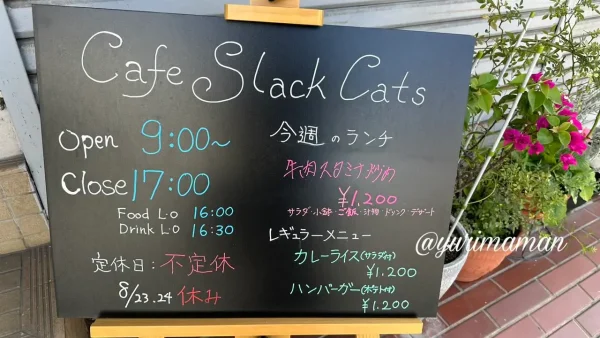 Cafe Slack Cats
Open 9:00~
Close 17:00
Food L·O 16:00
Drink L·O 16:30
定休日:不定休
8/23.24 休み
今週のランチ
牛肉スタミナ炒め
¥1,200
サラダ・小鉢・ご飯・汁物・ドリンク・デザート
レギュラーメニュー
カレーライス(サラダ付)
¥1.200
ハンバーガー(ポテト付)
¥1.200
@yurimaman